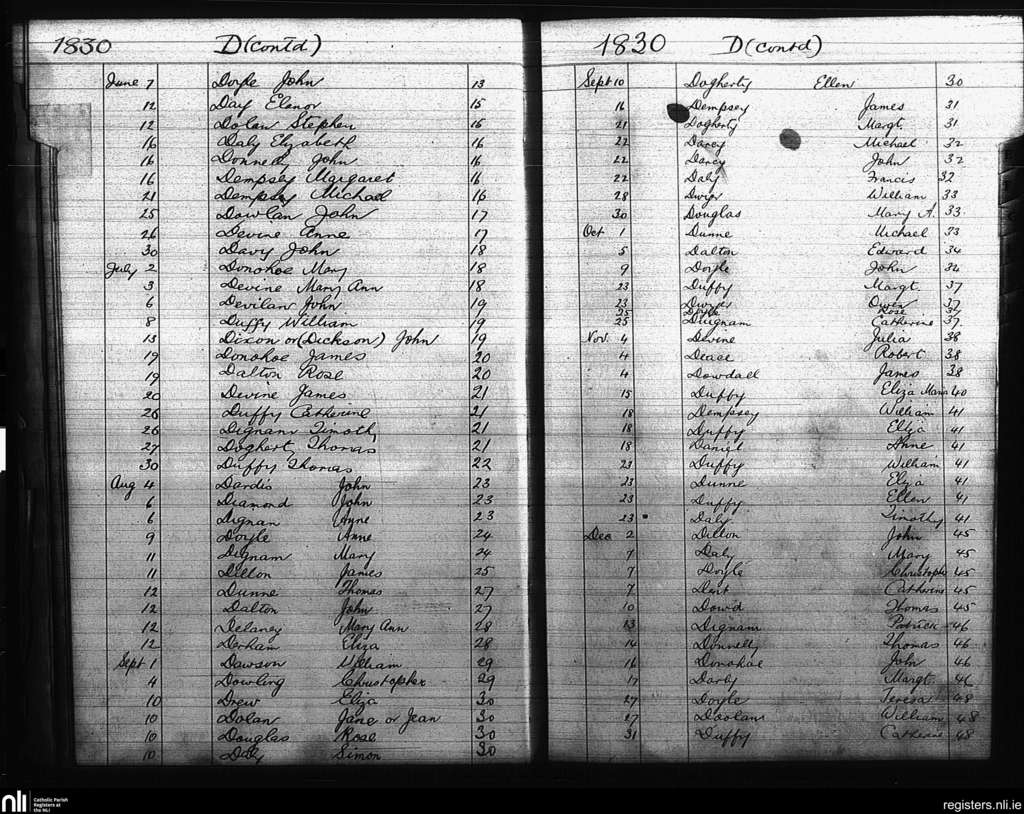 1830 D (contd)
June 7 Doyle John 13
12 Day Elenor 15
12 Dolan Stephen 16
16 Daly Elizabeth 16
16 Donnelly John 16
16 Dempsey Margaret 16
21 Dempsey Michael 16
25 Dowlan John 17
26 Devine Anne 17
30 Davy John 18
July 2 Donohoe Mary 18
3 Devine Mary Ann 18
6 Devilan John 19
8 Duffy William 19
13 Dixon or (Dickson) John 19
19 Donohoe James 20
19 Dalton Rose 20
20 Devine James 21
26 Duffy Catherine 21
26 Dignam Timothy 21
27 Doghert Thomas 21
30 Duffy Thomas 22
Aug 4 Dardis John 23
6 Diamond John 23
6 Dignan Anne 23
9 Doyle Anne 24
11 Dignam Mary 24
11 Dillon James 25
12 Dunne Thomas 27
12 Dalton John 27
12 Delaney Mary Ann 28
12 Derham Eliza 28
Sept 1 Dawson William 29
4 Dowling Christopher 29
10 Drew Eliza 30
10 Dolan Jane or Jean 30
10 Douglas Rose 30
10 Daly Simon 30
1830 D (contd)
Sept 10 Dogherty Ellen 30
16 Dempsey James 31
21 Dogherty Margt. 31
22 Darcy Michael 32
22 Darcy John 32
22 Daly Francis 32
28 Dwyer William 33
30 Douglas Mary A. 33
Oct 1 Dunne Michael 33
5 Dalton Edward 34
9 Doyle John 34
23 Duffy Margt. 37
23 Dwyer Owen 37
25 Doyle Rose 37
25 Duignam Catherine 37
Nov. 4 Devine Julia 38
4 Dease Robert 38
4 Dowdall James 38
15 Duffy Eliza Maria 40
18 Dempsey William 41
18 Duffy Eliza 41
18 Daniel Anne 41
23 Duffy William 41
23 Dunne Eliza 41
23 Duffy Ellen 41
23 Daly Timothy 41
Dec 2 Dillon John 45
7 Daly Mary 45
7 Doyle Christopher 45
7 Dent Catherine 45
10 Dowd Thomas 45
13 Dignam Patrick 46
14 Donnelly Thomas 46
16 Donohoe John 46
17 Darby Margt. 46
27 Doyle Teresa 48
27 Doolan William 48
31 Duffy Catherine 48
nli Catholic Parish
Registers at
the NLI
registers.nli.ie